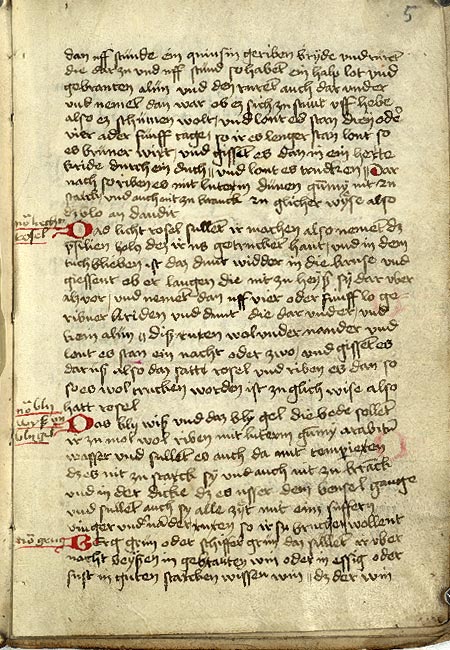 5
dan uff stunde ein quinsin geriben kryde und rurer
die dar zu und uff stund so habet ein halp lot und
gebranten alun und den ruret auch dar under
und nemet dan war ob er sich zu stunt uff hebe
also er schumen wolt und lont es stan drey oder
vier oder funff tage so ie es lenger stan lont so
es bruner wirt und gisset es dan in ein herte
kride durch ein duch und lont es trucken Dar
nach so riben es mit luterm dunen gumy nit zu
starck und auch nit zu kranck zu glicher wyse also
Das licht rosel sullet ir machen also nemet dz
rosel
presilien holtz dez ir us getrucket haut und in dem
tuch bliben ist daz duont widder in die kanne und
giessent ob er laugen die nit zu heyß sy dar uber
als vor und nemet dan uff vier oder funff lo ge
ribner kriden und duont die dar under und
kein alun diß ruren wol under nander und
lont es stan ein nacht oder zwo und gisset es
dar uß also daz satte rosel und riben es dan so
so es wol trucken worden ist zu glich wise also
hatt rosel
Das bly wiß und daz bly gel die bede sollet
ir zu mol wol riben mit luterm gumy arabicum
wasser und sullet es auch da mit temperieren
dz es nit zu starck sy und auch nit zu kranck
und in der dicke dz es usser dem bensel gange
und sullet auch sy alle zyt mit eim suffern
vinger under nander ruren so ir sy bruchen wollent
Berg grün oder schiffer grün daz sullet ir uber
nacht beyßen in gebranten win oder in essig oder
sust in guten starcken wissen win dz der win